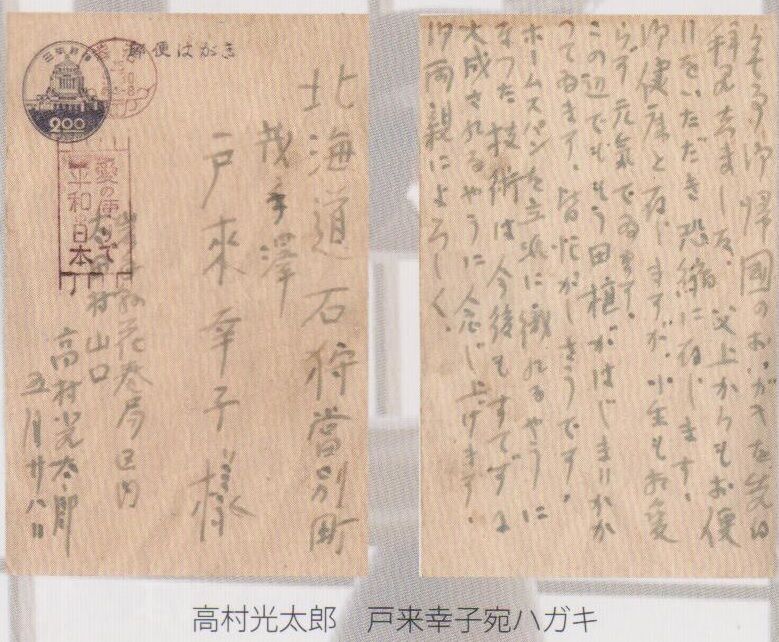 郵便はがき
2.00
愛の便りで
平和日本
北海道石狩當別町
茂平澤
戸來幸子様
岩手縣花巻局区内
太田村山口
高村光太郎
五月廿八日
御帰國のおハガキを先日
拝見しました。父上からもお便
りをいただき恐縮に存じます。
御健康と存じますが、小生も相変
らず元気でゐます。
この辺でももう田植がはじまりかか
つてゐます。皆忙がしさうです。
ホームスパンを立派に織れるやうに
なつた技術は今後もすてずに
大成されるやうに念じ上げます。
御両親によろしく。
高村光太郎　戸来幸子宛ハガキ